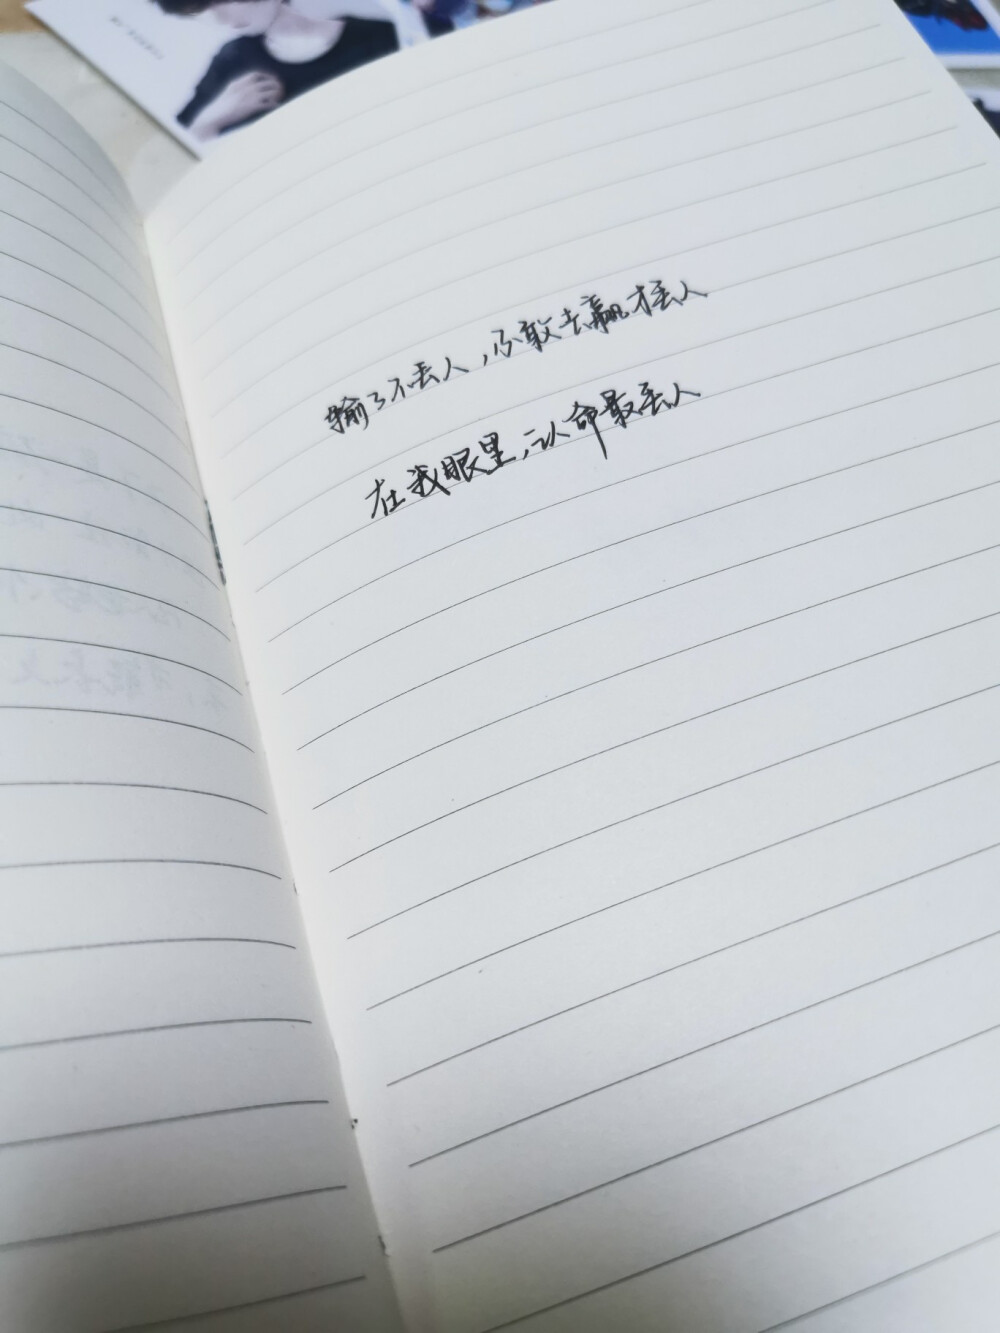 输了不丢人，不敢去赢才丢人
在我眼里，认命最丢人